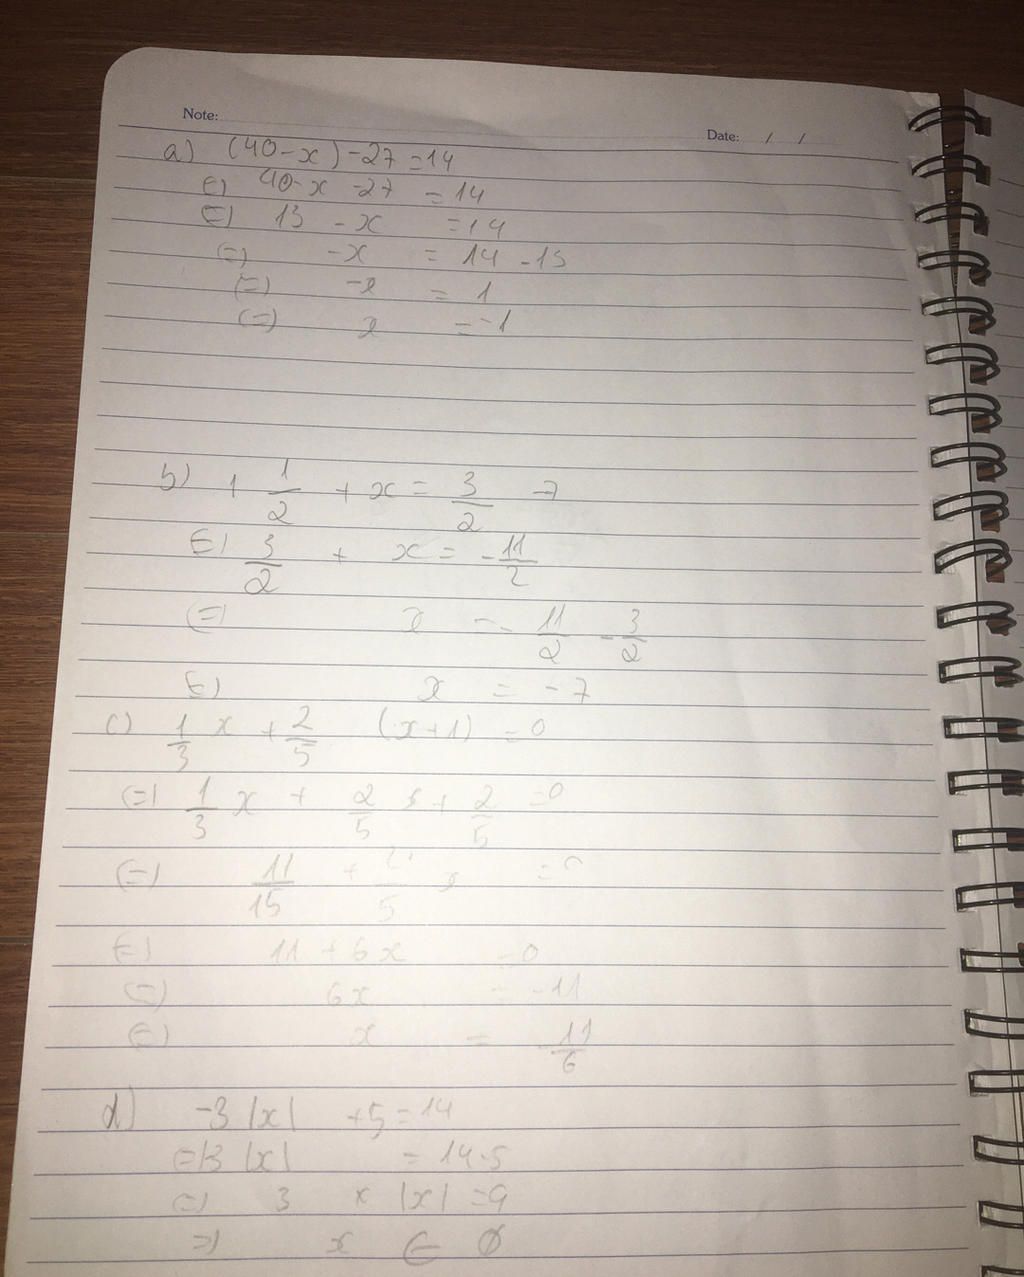 Note:
Date: / /
a) (40-x)-27=14
(=) 40-x -27 = 14
(=) 13 -x =14
(=) -x = 14 -13
(=) -x = 1
(=) x = -1
b) + 1/2 + x = 3/2 -7
(=) 3/2 + x = -11/2
(=) x = -11/2 - 3/2
(=) x = -7
c) 1/3 x + 2/5 (x+1) = 0
(=) 1/3 x + 2/5 x + 2/5 =0
(=) 11/15 + 2/5 x =0
(=) 11 + 6x =0
(=) 6x = -11
(=) x = -11/6
d) -3 |x| +5 = 14
=) 3 |x| = 14-5
=) 3 x |x| =9
=) x ∈ ∅